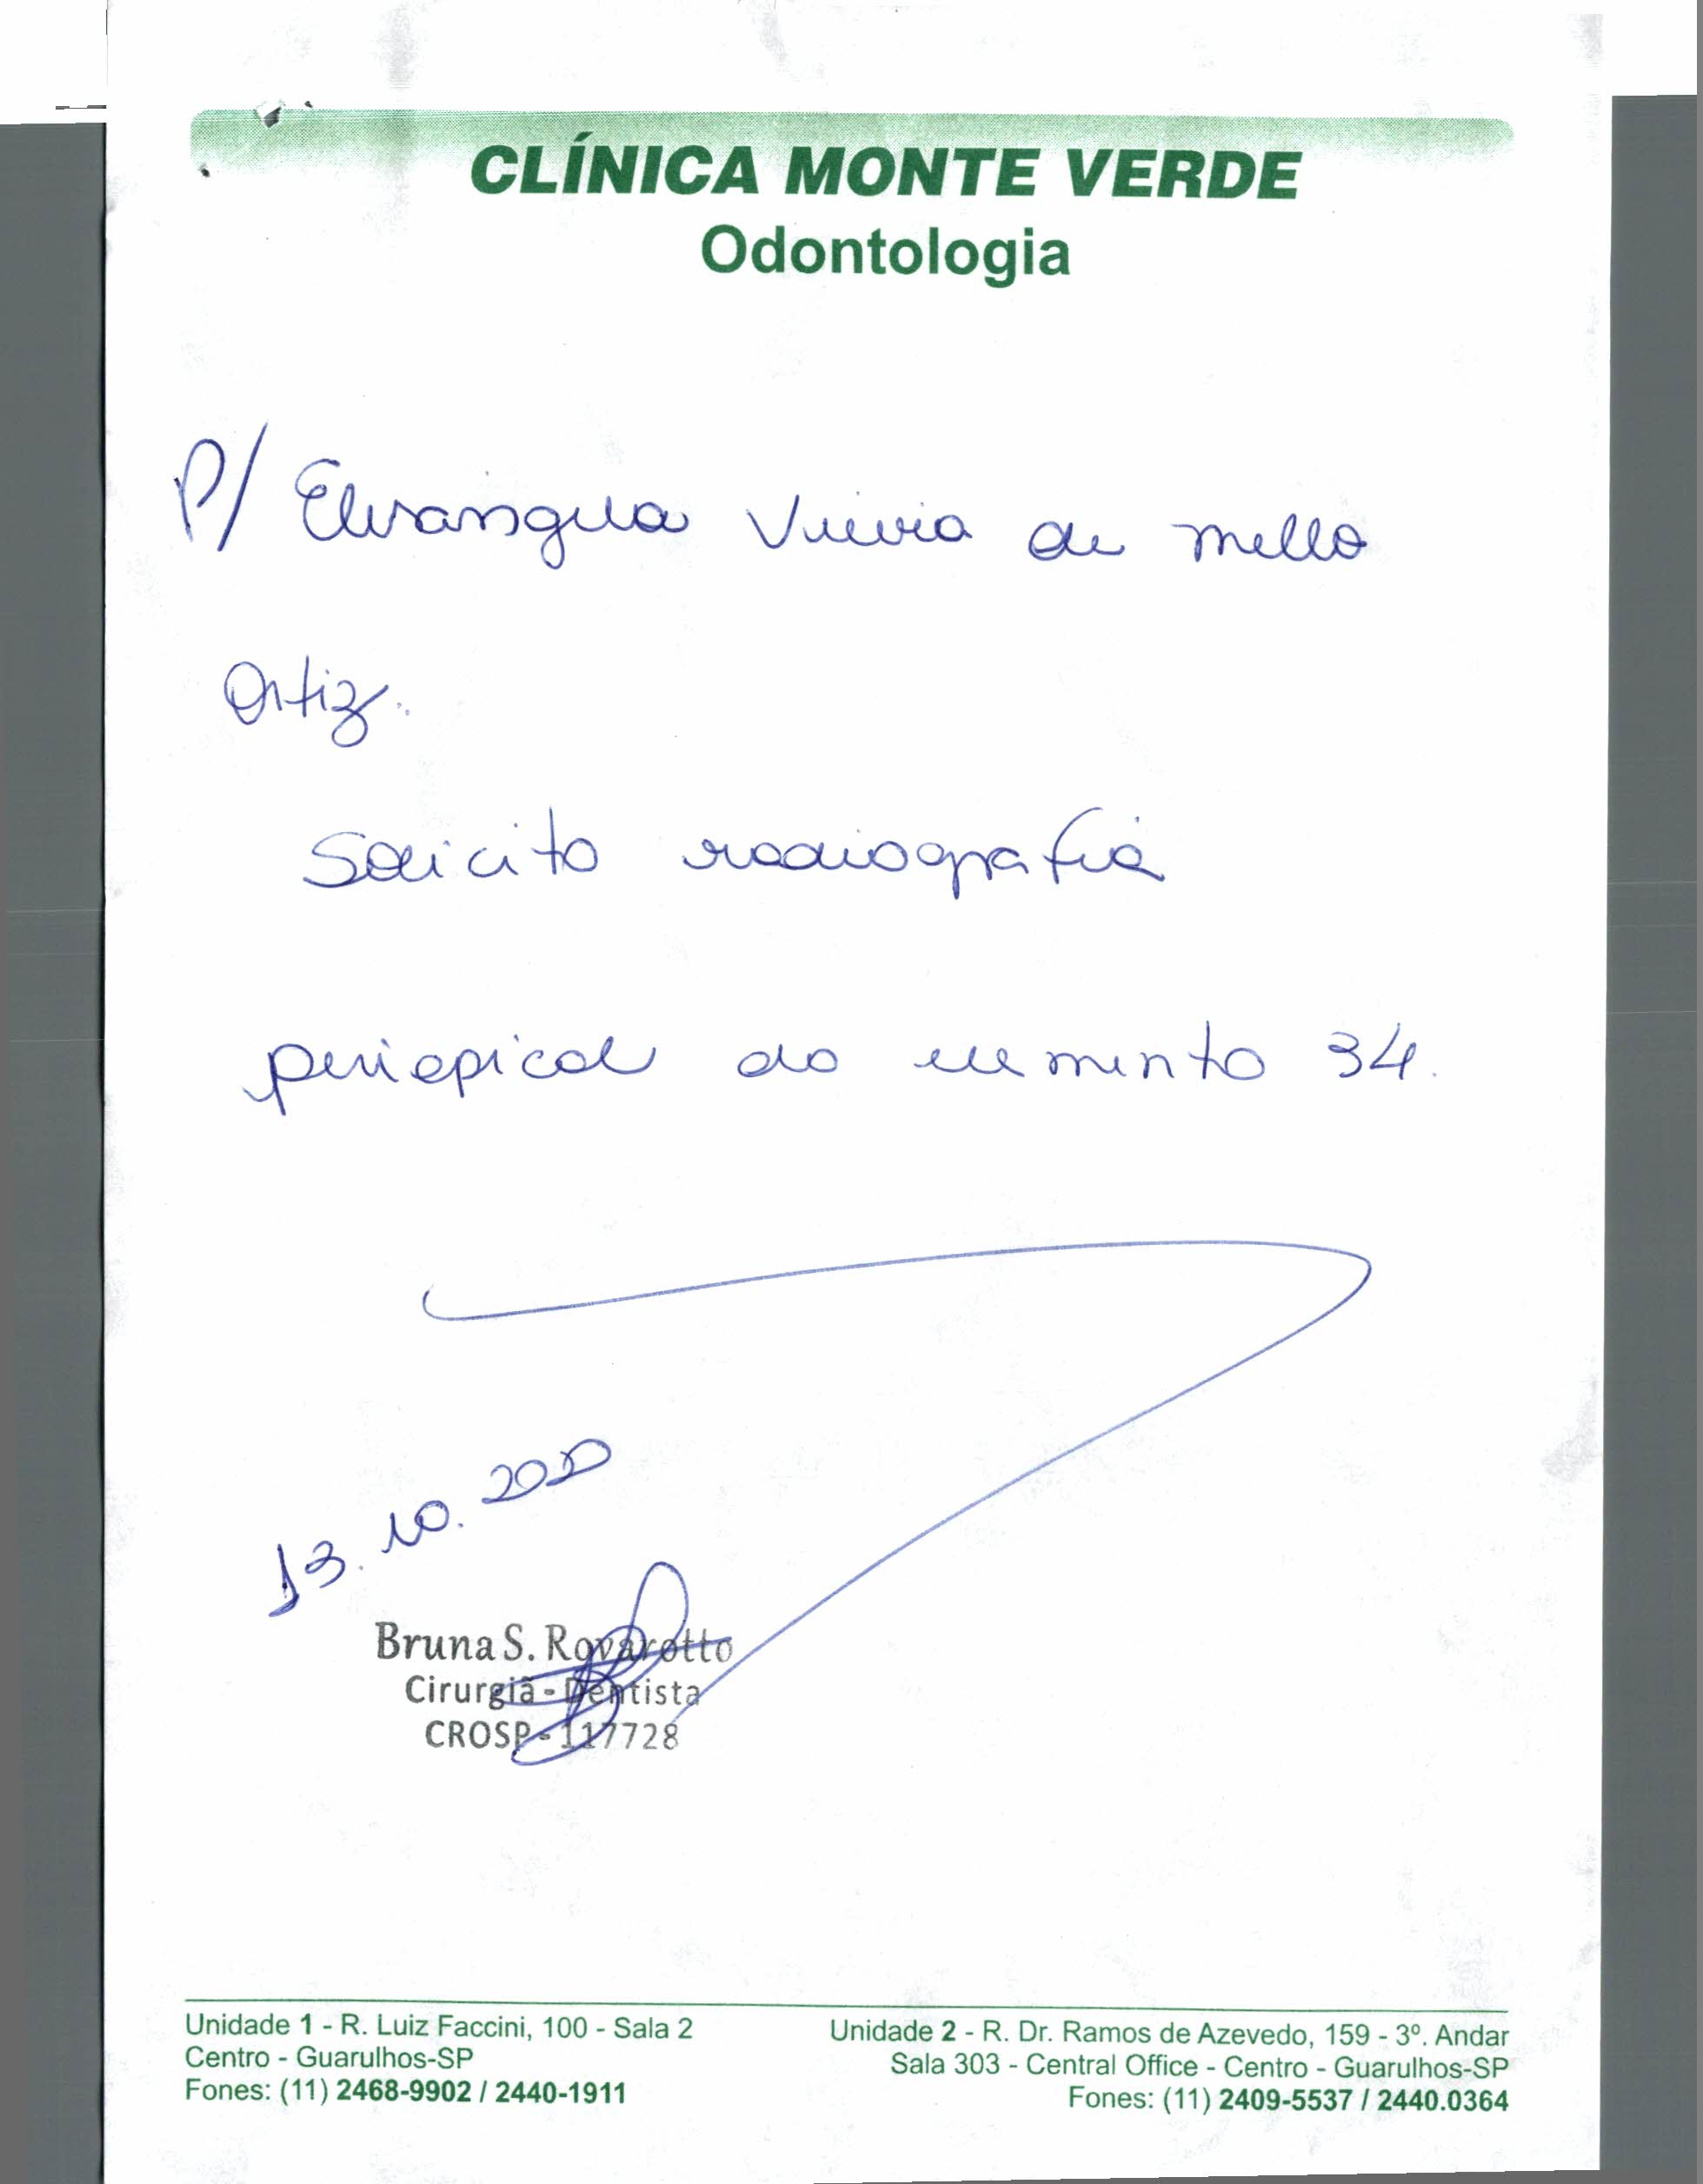 CLÍNICA MONTE VERDE
Odontologia
P/ Elisangela Vieira de Mello
Ortiz.
Solicito radiografia
periapical do elemento 34.
13.10.2020
Bruna S. Rovarotto
Cirurgiã - Dentista
CROSP - 117728
Unidade 1 - R. Luiz Faccini, 100 - Sala 2
Centro - Guarulhos-SP
Fones: (11) 2468-9902 / 2440-1911
Unidade 2 - R. Dr. Ramos de Azevedo, 159 - 3º. Andar
Sala 303 - Central Office - Centro - Guarulhos-SP
Fones: (11) 2409-5537 / 2440.0364